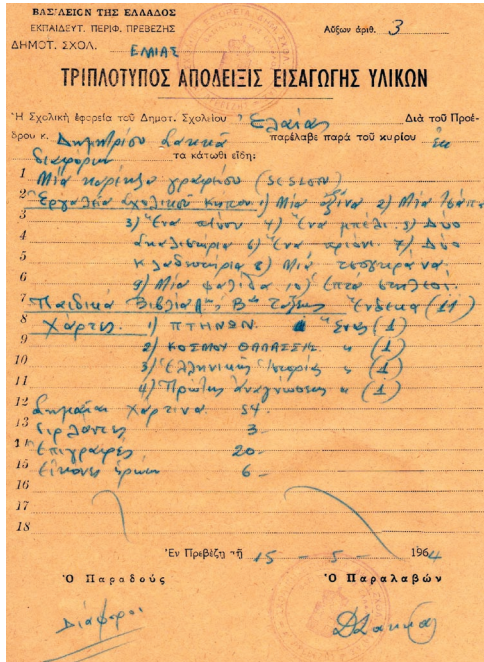 ΒΑΣΙΛΕΙΟΝ ΤΗΣ ΕΛΛΑΔΟΣ
ΕΚΠΑΙΔΕΥΤ. ΠΕΡΙΦ. ΠΡΕΒΕΖΗΣ
Αὔξων ἀριθ. 3
ΔΗΜΟΤ. ΣΧΟΛ. ΕΛΑΙΑΣ
ΤΡΙΠΛΟΤΥΠΟΣ ΑΠΟΔΕΙΞΙΣ ΕΙΣΑΓΩΓΗΣ ΥΛΙΚΩΝ
Ἡ Σχολική ἐφορεία τοῦ Δημοτ. Σχολείου Ἐλαίας Διά τοῦ Προέ-
δρου κ. Δημητρίου Σακκᾶ παρέλαβε παρά τοῦ κυρίου ἐκ
διαφόρων τα κάτωθι εἴδη:
1 Μία γραφείου
2 Ἐργαλεῖα σχολικοῦ κήπου 1) Μία ἀξίνα 2) Μία τσάπα
3 3) Ἕνα 4) Ἕνα μπέλι 5) Δύο
4 σκαλιστήρια 6) Ἕνα πριόνι. 7) Δύο
5 κλαδευτήρια 8) Μιά τσουγκράνα.
6 9) Μία ψαλίδα 10) Ἑπτά
7 Παιδικά Βιβλία Βας Τάξεως Ἕνδεκα (11)
8 Χάρτες. 1) ΠΤΗΝΩΝ. Ἕνας (1)
9 2) ΚΟΣΜΟΥ ΘΑΛΑΣΣΗΣ " (1)
10 3) Ἑλληνικῆς Ἱστορίας " (1)
11 4) Πρώτης ἀναγνώσεως " (1)
12 Σημαῖαι χάρτινα 54.
13 Γιρλάντες 3-
14 Ἐπιγραφές 20-
15 Εἰκόνες ἡρώων 6-
16
17
18
Ἐν Πρεβέζῃ τῇ 15 - 5 - 1964
Ὁ Παραδούς Ὁ Παραλαβών
Διάφοροι ΔΣακκᾶς